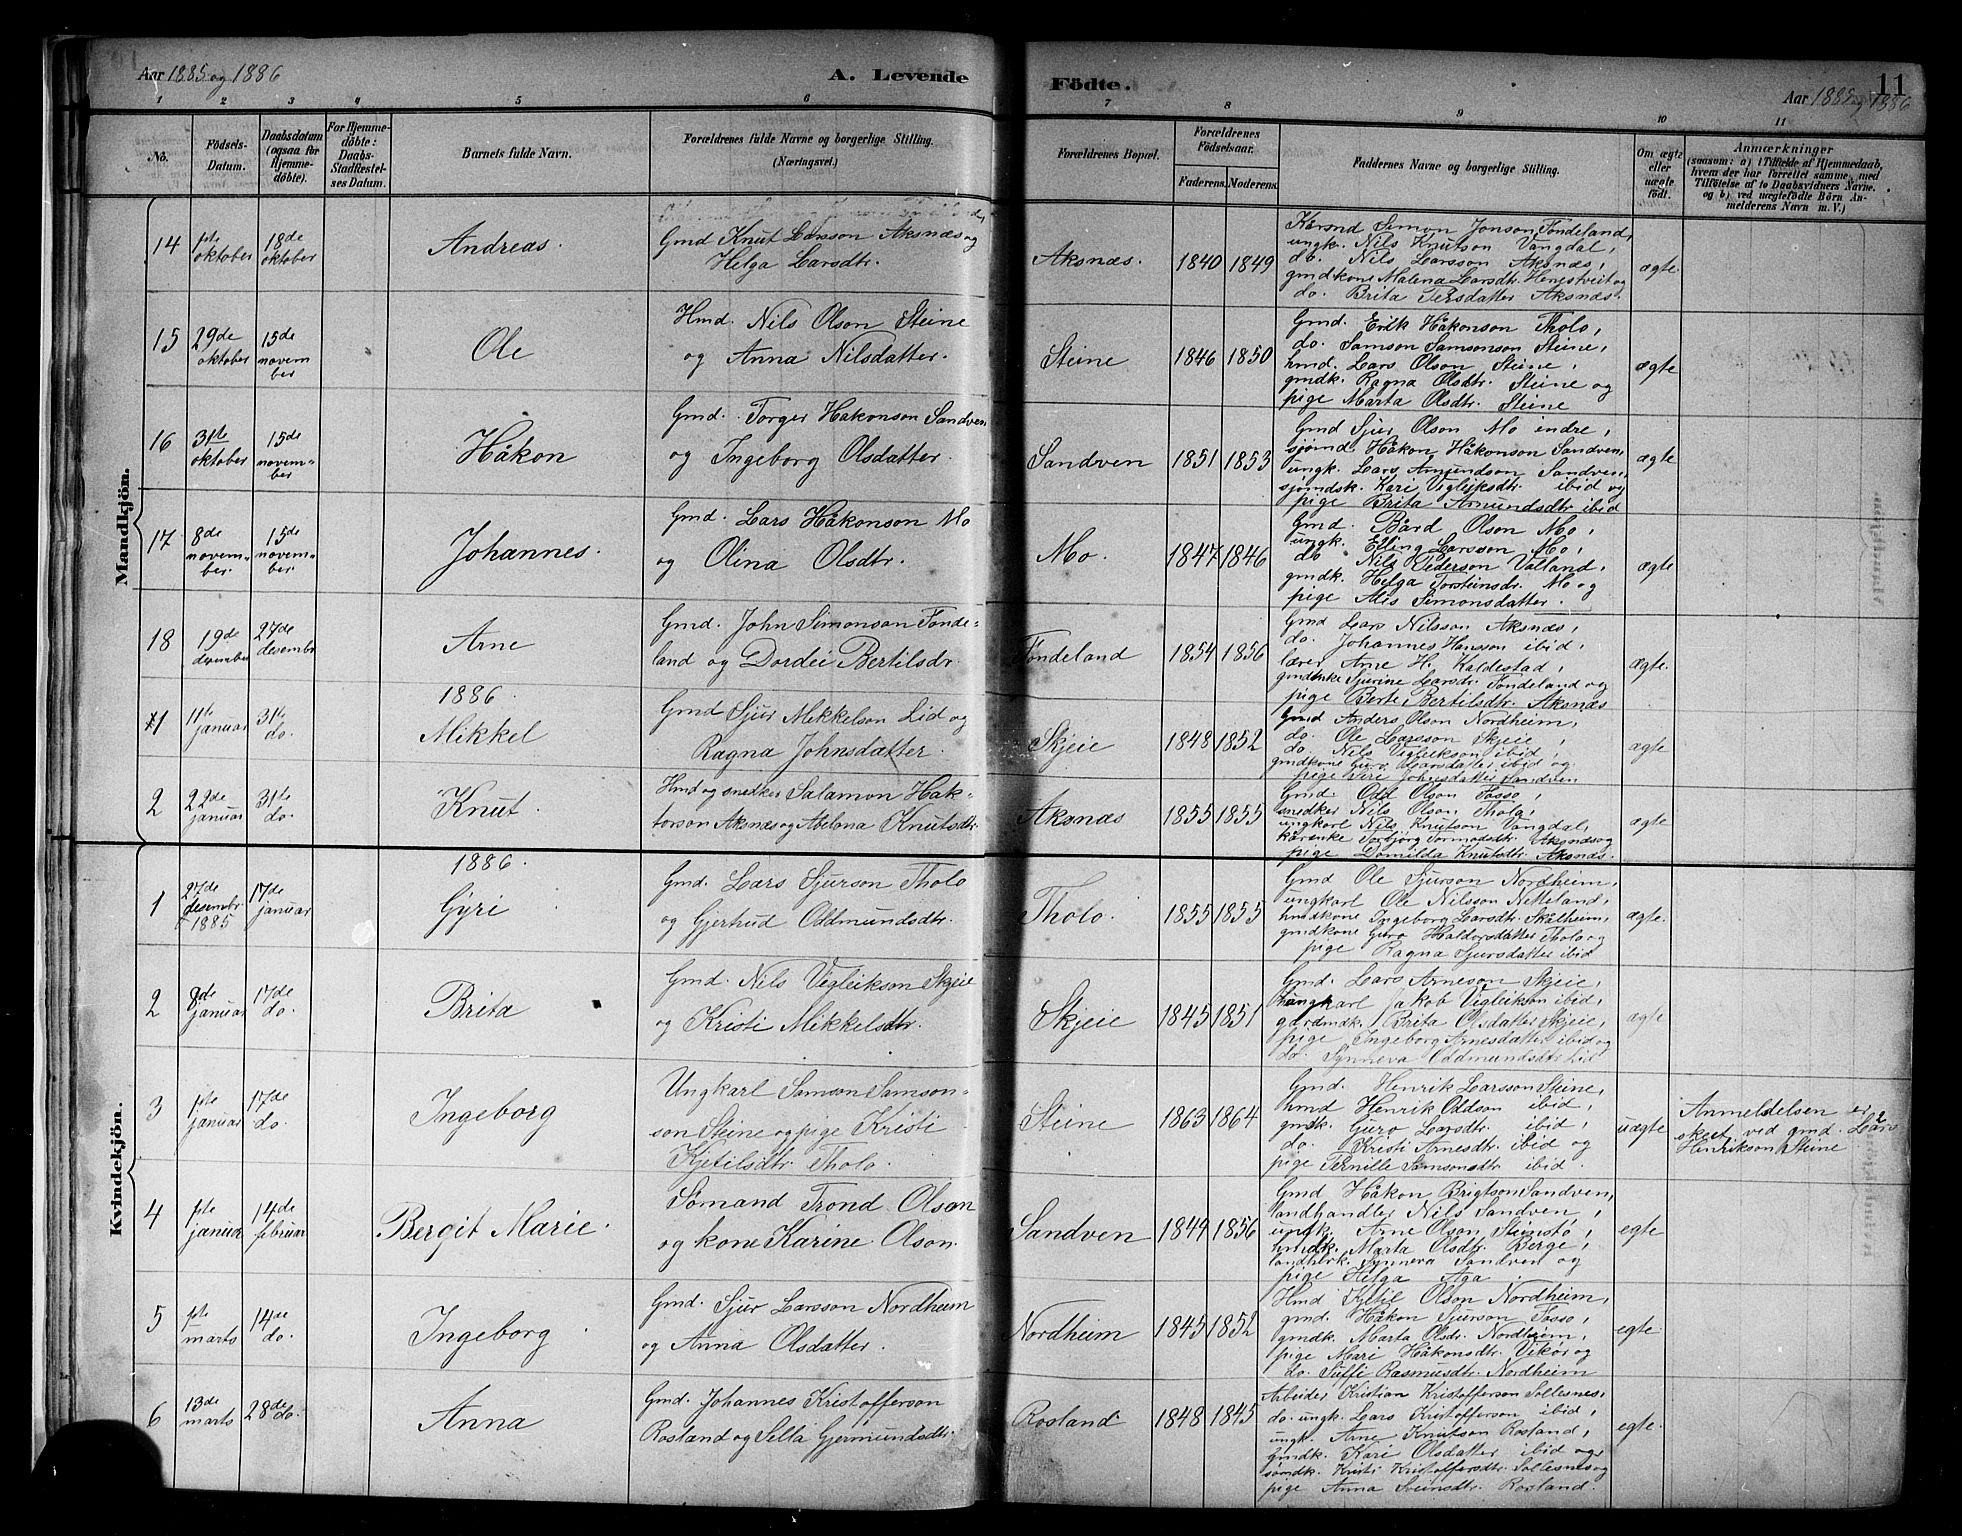 Aar 1885 og 1886
A. Levende
Födte.
11
Aar 1885 og 1886
1 2 3 4 5 6 7 8 9 10 11
No.
Födsels-
Datum.
Daabsdatum
(ogsaa for
Hjemme-
döbte).
For Hjemme-
döbte:
Daabs-
Stadfæstel-
ses Datum.
Barnets fulde Navn.
Forældrenes fulde Navne og borgerlige Stilling.
(Næringsvei.)
Forældrenes Bopæl.
Forældrenes
Födselsaar.
Faderens. Moderens.
Faddernes Navne og borgerlige Stilling.
Om ægte
eller
uægte
födt.
Anmærkninger
(saasom: a) i Tilfælde af Hjemmedaab,
hvem der har forrettet samme, med
Tilföielse af to Daabsvidners Navne.
og b) ved uægtefödte Börn An-
melderens Navn m. V.)
Mandkjön.
14
1ste
oktober
18de
oktober
Andreas.
Gmd Knut Larsson Aksnæs og
Helga Larsdtr.
Aksnæs.
1840 1849
Kårmd Simon Jonson Tondeland,
ungk. Nils Knutson Vangdal,
do. Nils Larsson Aksnæs,
gmdkone Malena Larsdtr. Henestveit og
do. Brita Persdatter Aksnæs.
ægte.
15
29de
oktober
15de
novem
ber
Ole
Hmd. Nils Olson Steine
og Anna Nilsdatter.
Steine
1846 1850
Gmd. Erik Håkonson Tholo,
do. Samson Samsonson Steine,
hmd. Lars Olson Steine,
gmdk. Ragna Olsdtr. Steine og
pige Marta Olsdtr. Steine
ægte
16
31te
oktober
15de
novem=
ber
Håkon
Gmd. Torger Håkonson Sandven
og Ingeborg Olsdatter.
Sandven
1851 1853
Gmd Sjur Olson Mo endre,
sjømd. Håkon Håkonson Sandven,
ungk. Lars Amundson Sandven,
sjømdsk. Kari Vigleiksdtr ibid og
pige Brita Amundsdtr ibid
ægte
17
8de
novem=
ber
15de
novem=
ber
Johannes.
Gmd. Lars Håkonson Mo
og Olina Olsdtr.
Mo.
1847 1846
Gmd. Bård Olson Mo,
ungk. Elling Larsson Mo,
do Nils Pederson Valland,
gmdk. Helga Torsteinsdr. Mo og
pige Alis Simonsdatter.
ægte
18
19de
desember
27de
desembr
Arne
Gmd. John Simonson Tonde-
land og Dordei Bertilsdr.
Tondeland
1854 1856
Gmd Lars Nilsson Aksnæs,
do. Johannes Hansson ibid,
lærer Arne H. Kaldestad,
gmdenke Sjurine Larsdtr. Tondeland og
pige Berte Bertilsdtr. Aksnæs
ægte.
1886
1
11te
januar
31te
do.
Mikkel
Gmd Sjur Mikkelson Lid og
Ragna Johnsdatter.
Skjeie
1848 1852
Gmd Anders Olson Nordheim,
do. Ole Larsson Skjeie,
do. Nils Vigleikson ibid,
gmdkone Guro Larsdatter ibid og
pige Siri Johnsdatter Sandven
ægte
2
22de
januar
31te
do.
Knut.
Hmd og snedker Salamon Hak-
torson Aksnæs og Abelona Knutsdtr.
Aksnæs
1855 1855
Gmd. Odd Olson Fosso,
snedker Nils Olson Tholo,
ungkarl Nils Knutson Vangdal,
kårenke Torbjørg Tormodsdtr. Aksnæs og
pige Domilda Knutsdtr. Aksnæs.
ægte
Kvindekjön.
1886.
1
27de
desembr.
1885
17de
januar
Gyri
Gmd. Lars Sjurson Tholo
og Gjertrud Oddmundsdtr.
Tholo.
1855 1855
Gmd Ole Sjurson Nordheim,
ungkarl Ole Nilsson Netteland,
hmdkone Ingeborg Larsdtr. Skålheim,
gmdkone Guro Haldorsdatter Tholo og
pige Ragna Sjursdatter ibid
ægte.
2
8de
januar
17de
do.
Brita
Gmd. Nils Vigleikson Skjeie
og Kristi Mikkelsdtr.
Skjeie
1845 1851
Gmd. Lars Arneson Skjeie,
Ungkarl Jakob Vigleikson ibid,
gårdmdk. Brita Olsdatter Skjeie,
pige Ingeborg Arnesdatter ibid og
do. Synneva Oddmundsdtr Lid
ægte
3
1ste
januar
17de
do.
Ingeborg
Ungkarl Samson Samson-
son Steine og pige Kristi
Kjetilsdtr. Tholo.
Steine
1863 1864
Gmd. Henrik Larsson Steine,
hmd Henrik Oddson ibid,
gmdk. Guro Larsdtr. ibid,
do. Kristi Arnesdtr. ibid og
pige Pernille Samsonsdtr ibid.
uægte
Anmeldelsen er
skeet ved gmd. Lars
Henrikson Steine
4
1ste
januar
14de
februar
Bergit Marie.
Sömand Trond Olson
og kone Karine Olson.
Sandven
1849 1856
Gmd Håkon Brigtson Sandven,
landhandler Nils Sandven,
ungk. Arne Olson Steinstø,
hmdk. Marta Olsdtr. Berge,
landhdlrk. Synneva Sandven og
pige Helga Aga
egte
5
1ste
marts
14de
do.
Ingeborg
Gmd. Sjur Larsson Nordheim
og Anna Olsdatter.
Nordheim
1845 1852
Hmd Kjetil Olson Nordheim,
gmd. Håkon Sjurson Fosso,
gmdk. Marta Olsdr. Nordheim,
pige Mari Håkonsdtr. Vikør og
do. Siffi Rasmusdtr. Nordheim
egte
6
13de
marts
28de
do.
Anna
Gmd. Johannes Kristofferson
Rosland og Sella Gjermundsdtr.
Rosland
1848 1845
Arbeider Kristian Kristofferson Sollesnes,
do. ungk. Lars Kristofferson ibid,
ungk. Arne Knutson Rosland,
gmdk. Kari Olsdatter ibid og
sømdk. Kristi Kristoffersdtr. Sollesnes og
pige Anna Sveinsdtr. Rosland.
egte.